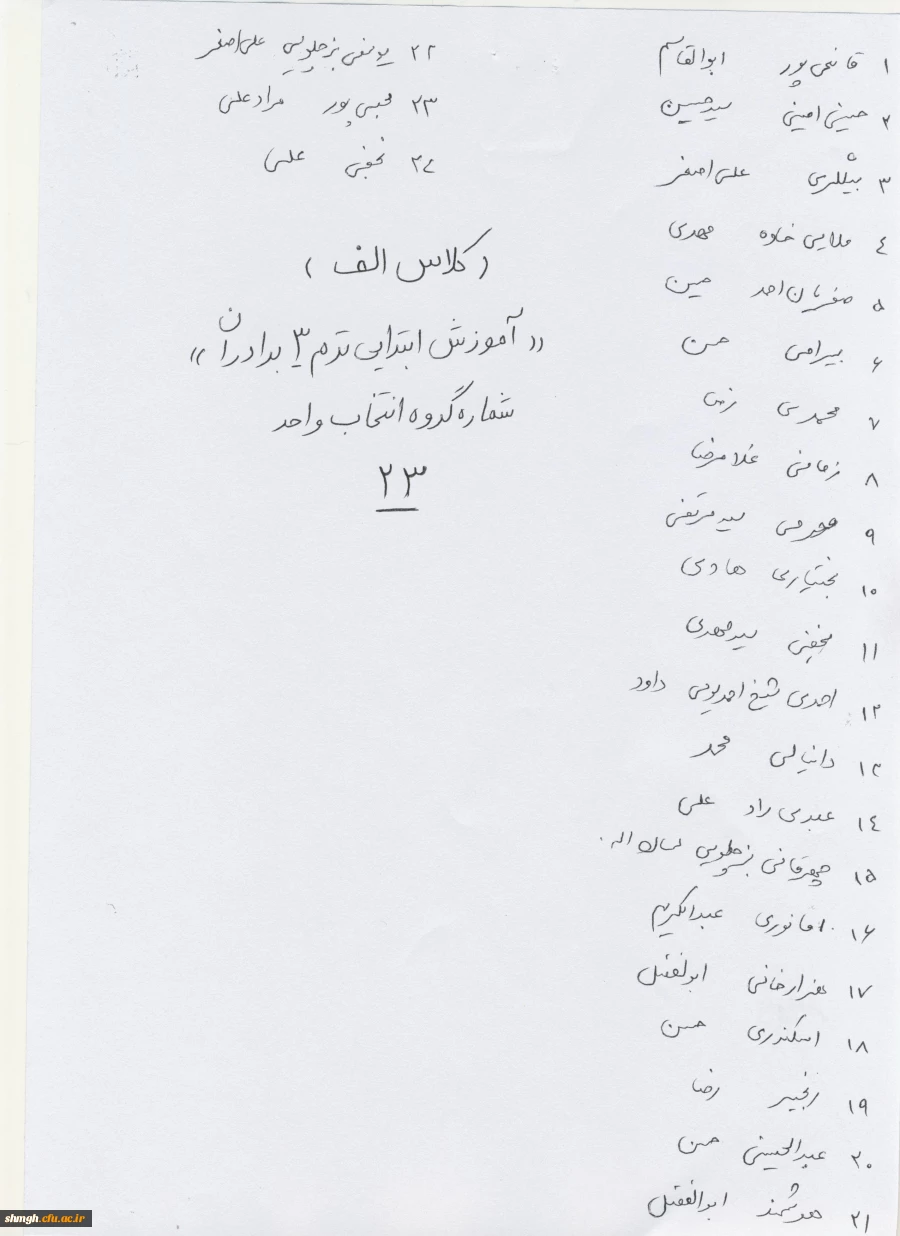 ۱ قاضی پور ابوالقاسم
۲ حسینی امینی سید حسین
۳ بیگلری علی اصغر
۴ ملایی خاوه مهدی
۵ صفریان احد حسین
۶ بیرامی حسن
۷ محمدی رضا
۸ زمانی غلامرضا
۹ سید مرتضی
۱۰ بختیاری هادی
۱۱ سید مهدی
۱۲ احمدی شیخ احمدیوسی داود
۱۳ دانیالی محمد
۱۴ عبدی راد علی
۱۵ چهرقانی بزچلویی
۱۶ امانوری عبدالکریم
۱۷ هزارخانی ابوالفضل
۱۸ اسکندری حسن
۱۹ رنجبر رضا
۲۰ عبدالحسینی حسن
۲۱ هوشمند ابوالفضل
۲۲ یوسفی بزچلویی علی اصغر
۲۳ محبی پور مرادعلی
۲۴ نجفی علی
(کلاس الف)
«آموزش ابتدایی ترم ۳ برادران»
شماره گروه انتخاب واحد
۲۳
shmgh.cfu.ac.ir